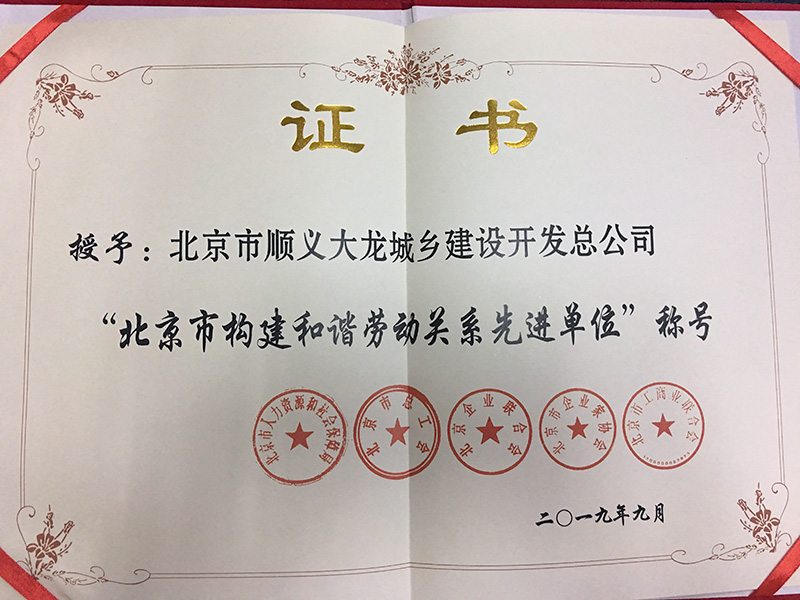 证书
授予：北京市顺义大龙城乡建设开发总公司
“北京市构建和谐劳动关系先进单位”称号
北京市人力资源和社会保障局
北京市总工会
北京企业联合会
北京市企业家协会
北京市工商业联合会
二〇一九年九月